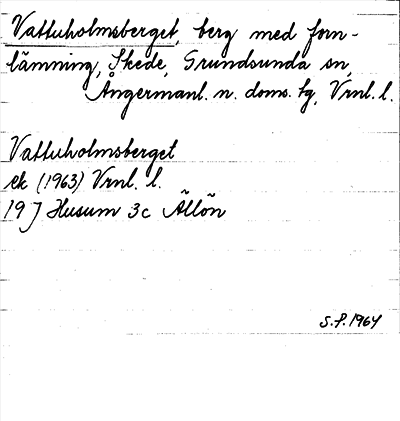 Vattuholmsberget, berg med forn-
lämning, Skede, Grundsunda sn,
Ångermanl. n. doms. tg, Vrnl. l.
Vattuholmsberget
ek (1963) Vrnl. l.
19 J Husum 3c Ällön
S.P. 1964